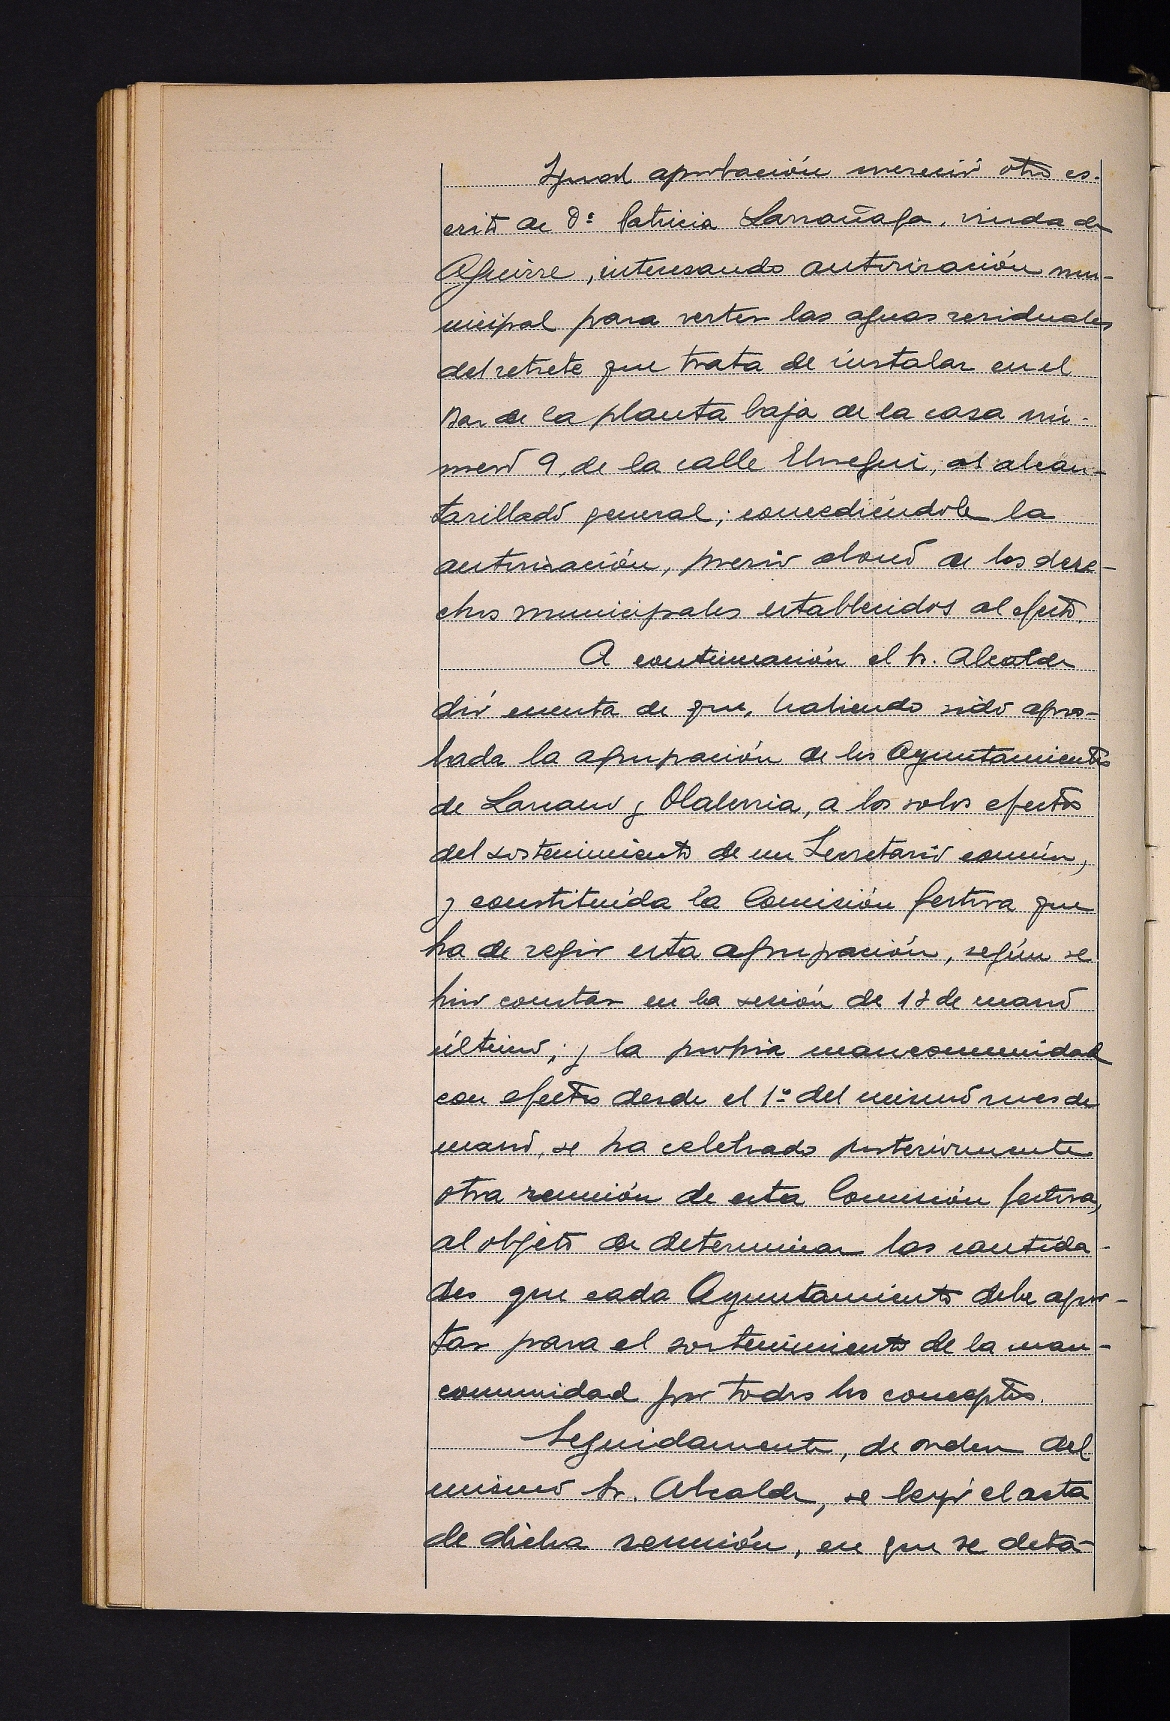 Igual aprobación mereció otro es-
crito de Dª Patricia Larrañaga, viuda de
Aguirre, interesando autorización mu-
nicipal para verter las aguas residuales
del retrete que trata de instalar en el
Bar de la planta baja de la casa nú-
mero 9, de la calle Elosegui, al alcan-
tarillado general; concediéndole la
autorización, previo abono de los dere-
chos municipales establecidos al efecto.
A continuación el Sr. Alcalde
dió cuenta de que, habiendo sido apro-
bada la agrupación de los Ayuntamientos
de Lazcano y Olaberria, a los solos efectos
del sostenimiento de un Secretario común,
y constituída la Comisión gestora que
ha de regir esta agrupación, según se
hizo constar en la sesión de de marzo
último; y la propia mancomunidad
con efectos desde el 1º del mismo mes de
marzo, se ha celebrado posteriormente
otra reunión de esta Comisión gestora,
al objeto de determinar las cantida-
des que cada Ayuntamiento debe apor-
tar para el sostenimiento de la man-
comunidad por todos los conceptos.
Seguidamente, de orden del
mismo Sr. Alcalde, se leyó el acta
de dicha reunión, en que se deta-